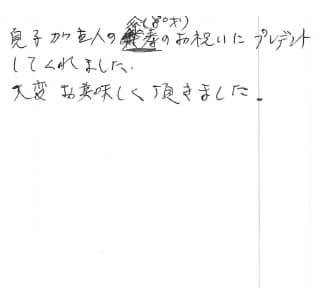 傘(80才)
息子から主人の傘寿のお祝いに プレゼント
してくれました。
大変 お美味しく 頂きました。